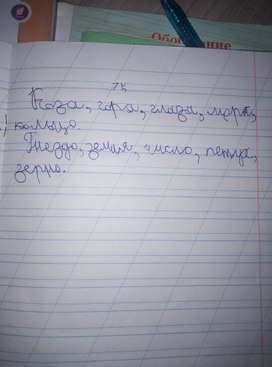 Обо
78
Коза, гора, глаза, моря,
кольцо.
Гнездо, земля, число, петля,
зерно.